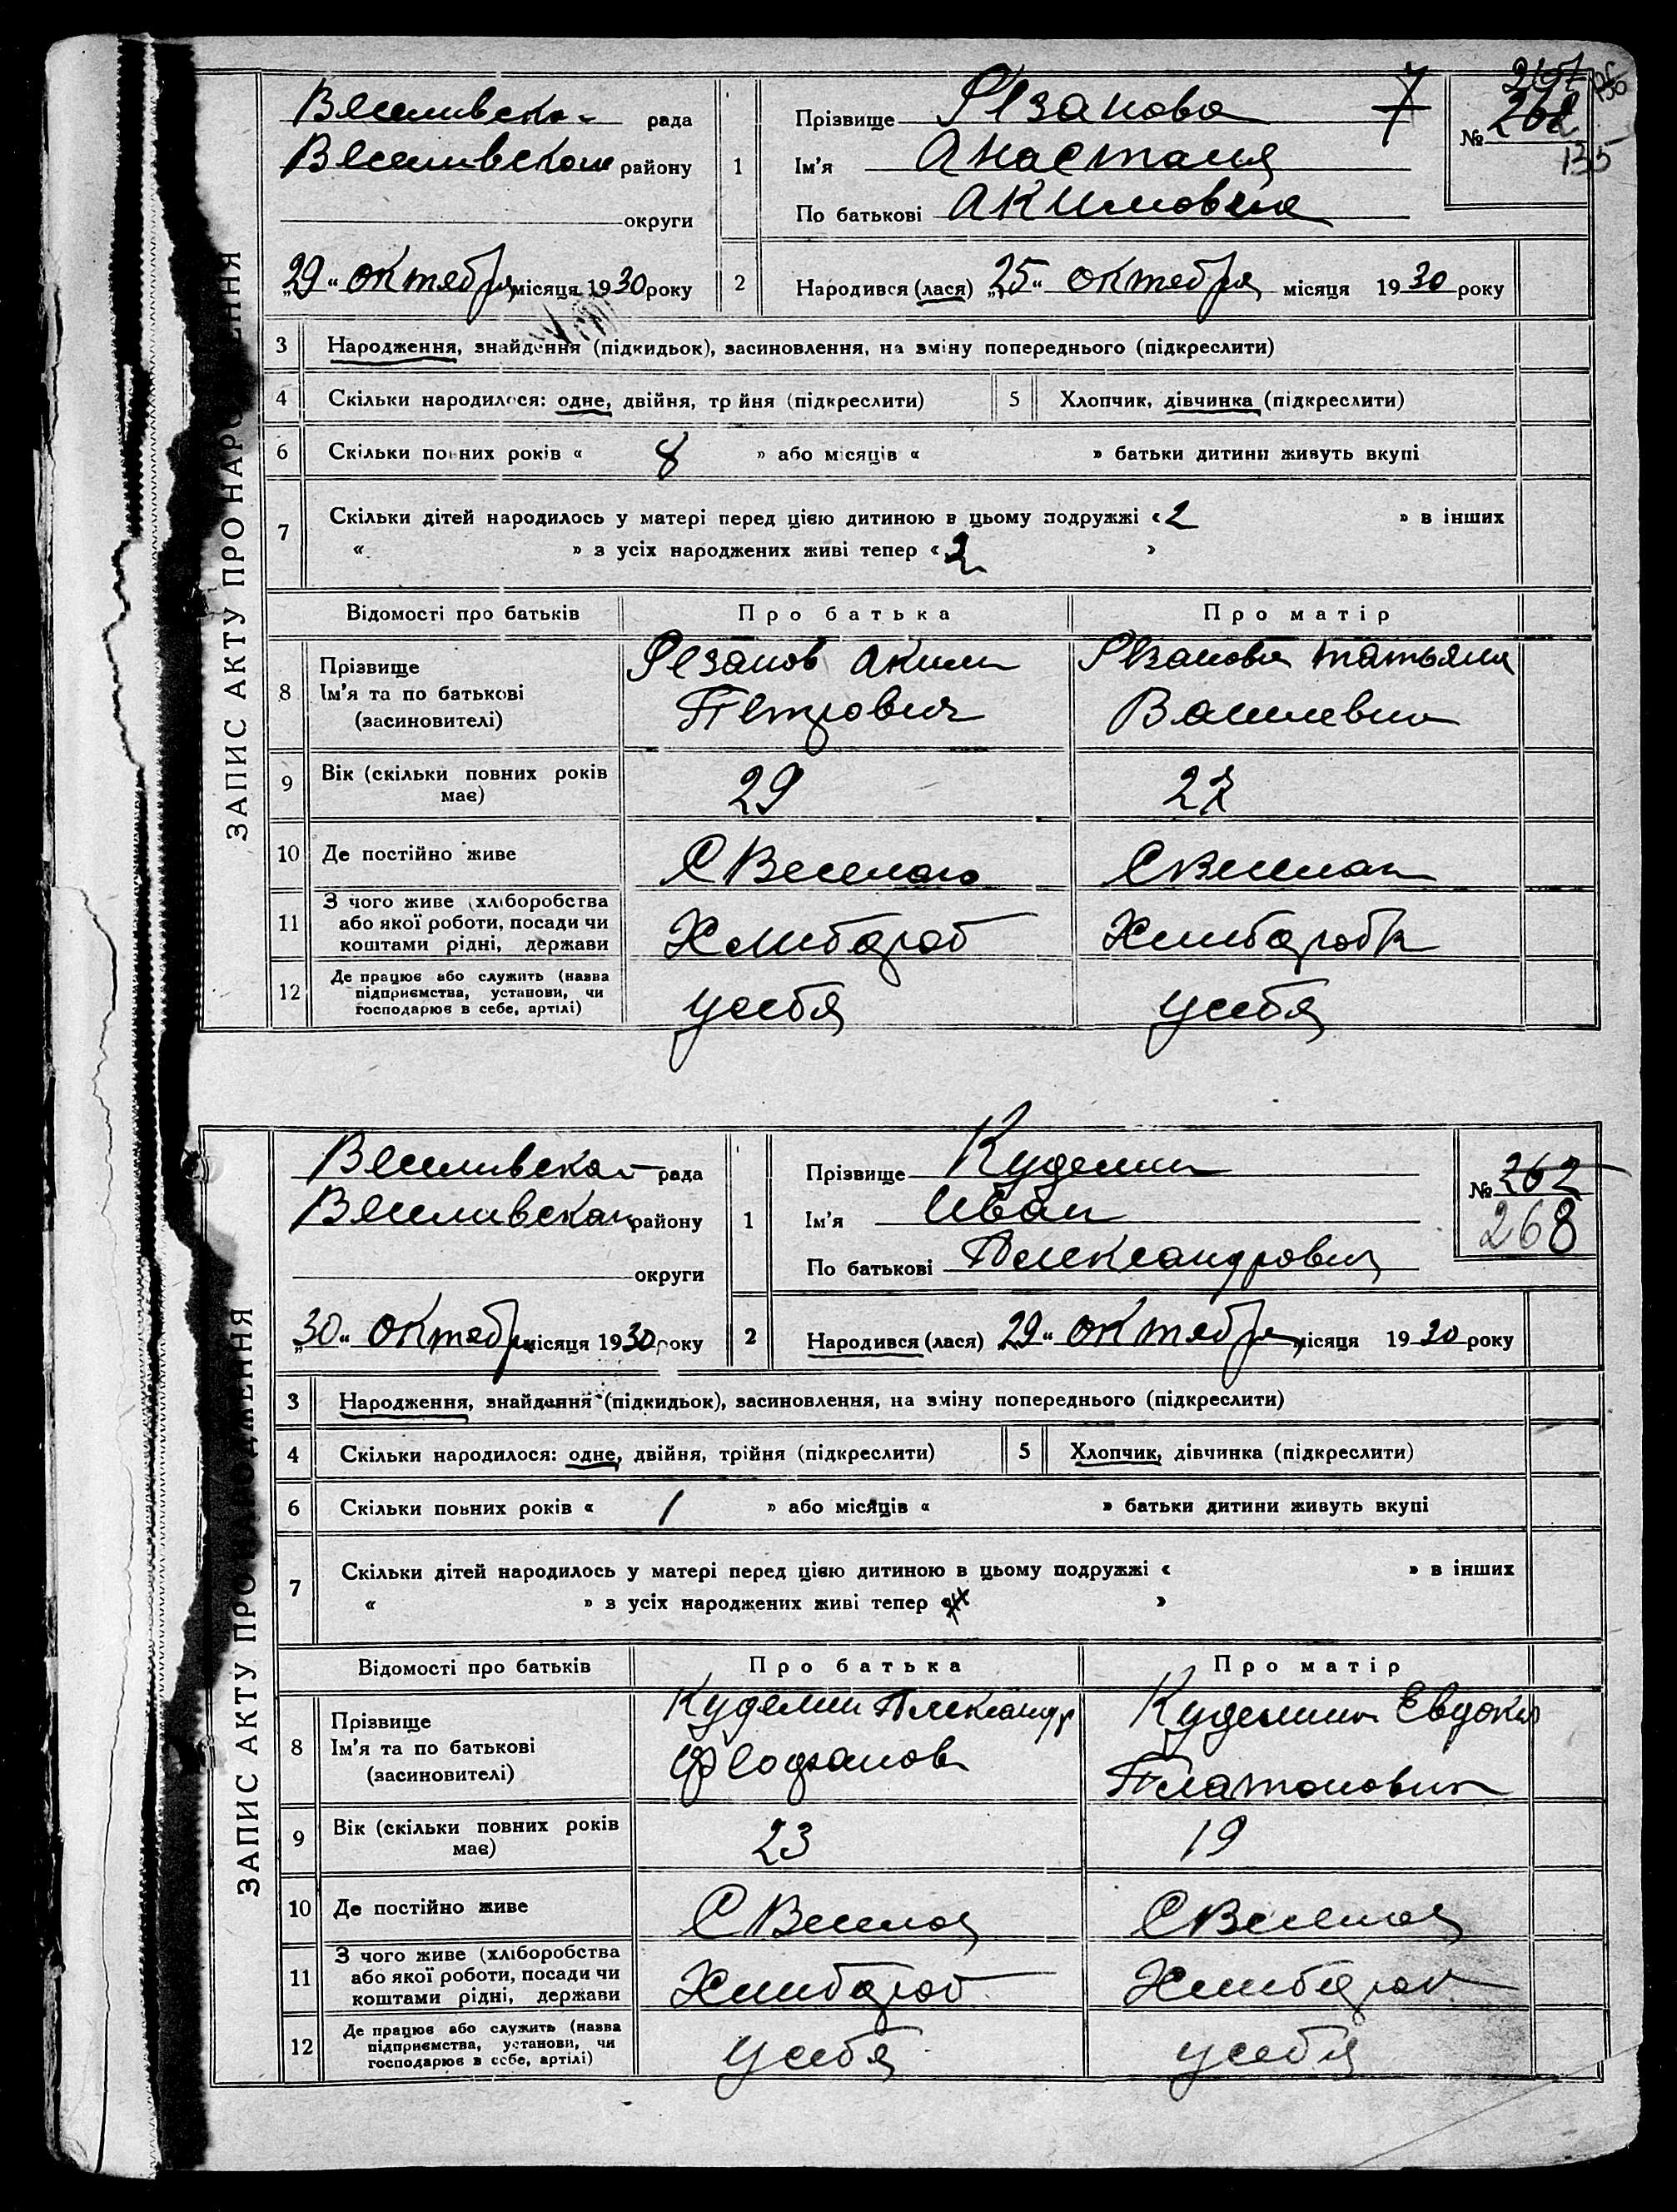 ЗАПИС АКТУ ПРО НАРОДЖЕННЯ
Веселивска рада
Веселивском району
округи
„29“ октября місяця 1930 року
1
Прізвище Резанова
Ім'я Анастасия
По батькові Акимовна
№ 262
267
135
2
Народився (лася) „25“ октября місяця 1930 року
3 Народження, знайдення (підкидьок), засиновлення, на зміну попереднього (підкреслити)
4 Скільки народилося: одне, двійня, трійня (підкреслити)
5 Хлопчик, дівчинка (підкреслити)
6 Скільки повних років « 8 » або місяців « » батьки дитини живуть вкупі
7 Скільки дітей народилось у матері перед цією дитиною в цьому подружжі « 2 » в інших
« » з усіх народжених живі тепер « 2 »
Відомості про батьків Про батька Про матір
8 Прізвище Ім'я та по батькові (засиновителі)
Резанов Аким Петрович
Резанова Татьяна Васильевна
9 Вік (скільки повних років має) 29 27
10 Де постійно живе С Веселого С Веселая
11 З чого живе (хліборобства або якої роботи, посади чи коштами рідні, держави
Хлибороб Хлиборобк
12 Де працює або служить (назва підприємства, установи, чи господарює в себе, артілі)
у себя у себя
ЗАПИС АКТУ ПРО НАРОДЖЕННЯ
Веселивская рада
Веселивская району
округи
„30“ октября місяця 1930 року
1
Прізвище Куделин
Ім'я Иван
По батькові Александрович
№ 262
268
2
Народився (лася) „29“ октября місяця 1930 року
3 Народження, знайдення (підкидьок), засиновлення, на зміну попереднього (підкреслити)
4 Скільки народилося: одне, двійня, трійня (підкреслити)
5 Хлопчик, дівчинка (підкреслити)
6 Скільки повних років « 1 » або місяців « » батьки дитини живуть вкупі
7 Скільки дітей народилось у матері перед цією дитиною в цьому подружжі « » в інших
« » з усіх народжених живі тепер « »
Відомості про батьків Про батька Про матір
8 Прізвище Ім'я та по батькові (засиновителі)
Куделин Александр
Куделина Евдокия Платоновна
9 Вік (скільки повних років має) 23 19
10 Де постійно живе С Веселоя С Веселоя
11 З чого живе (хліборобства або якої роботи, посади чи коштами рідні, держави
Хлибороб Хлибороб
12 Де працює або служить (назва підприємства, установи, чи господарює в себе, артілі)
у себя у себя